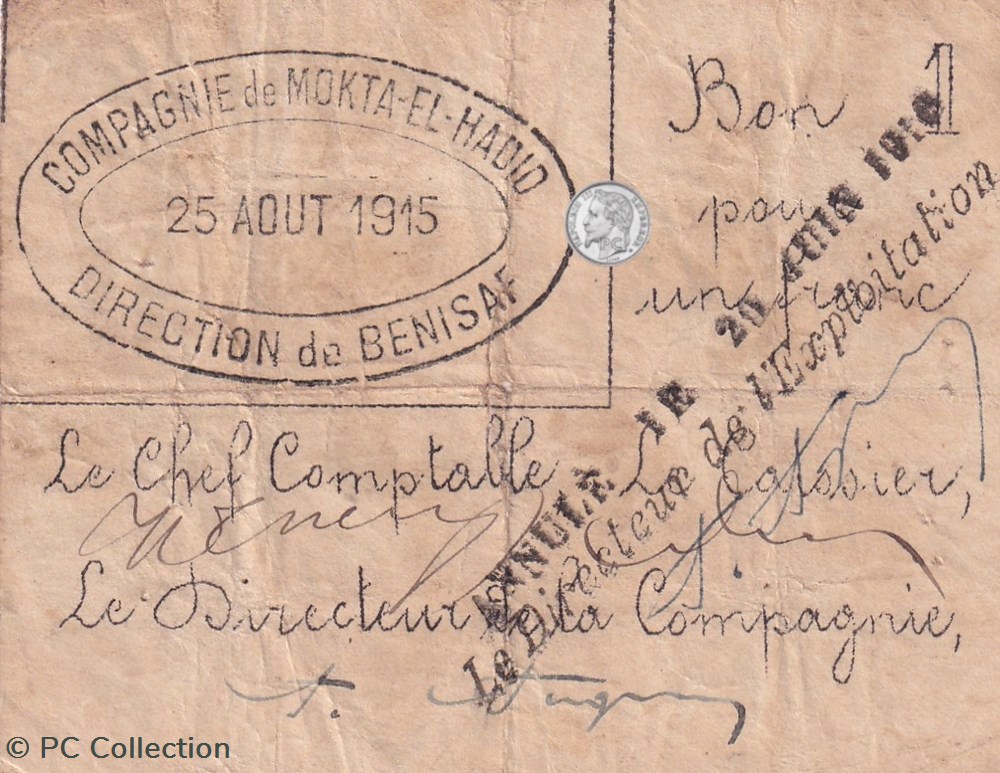 COMPAGNIE de MOKTA-EL-HADID
25 AOUT 1915
DIRECTION de BENISAF
Bon 1
pour
un franc
PC
Le Chef Comptable Le Caissier,
Le Directeur de la Compagnie,
ANNULÉ LE 25 JUIN 1916
Le Directeur de l'Exploitation
© PC Collection